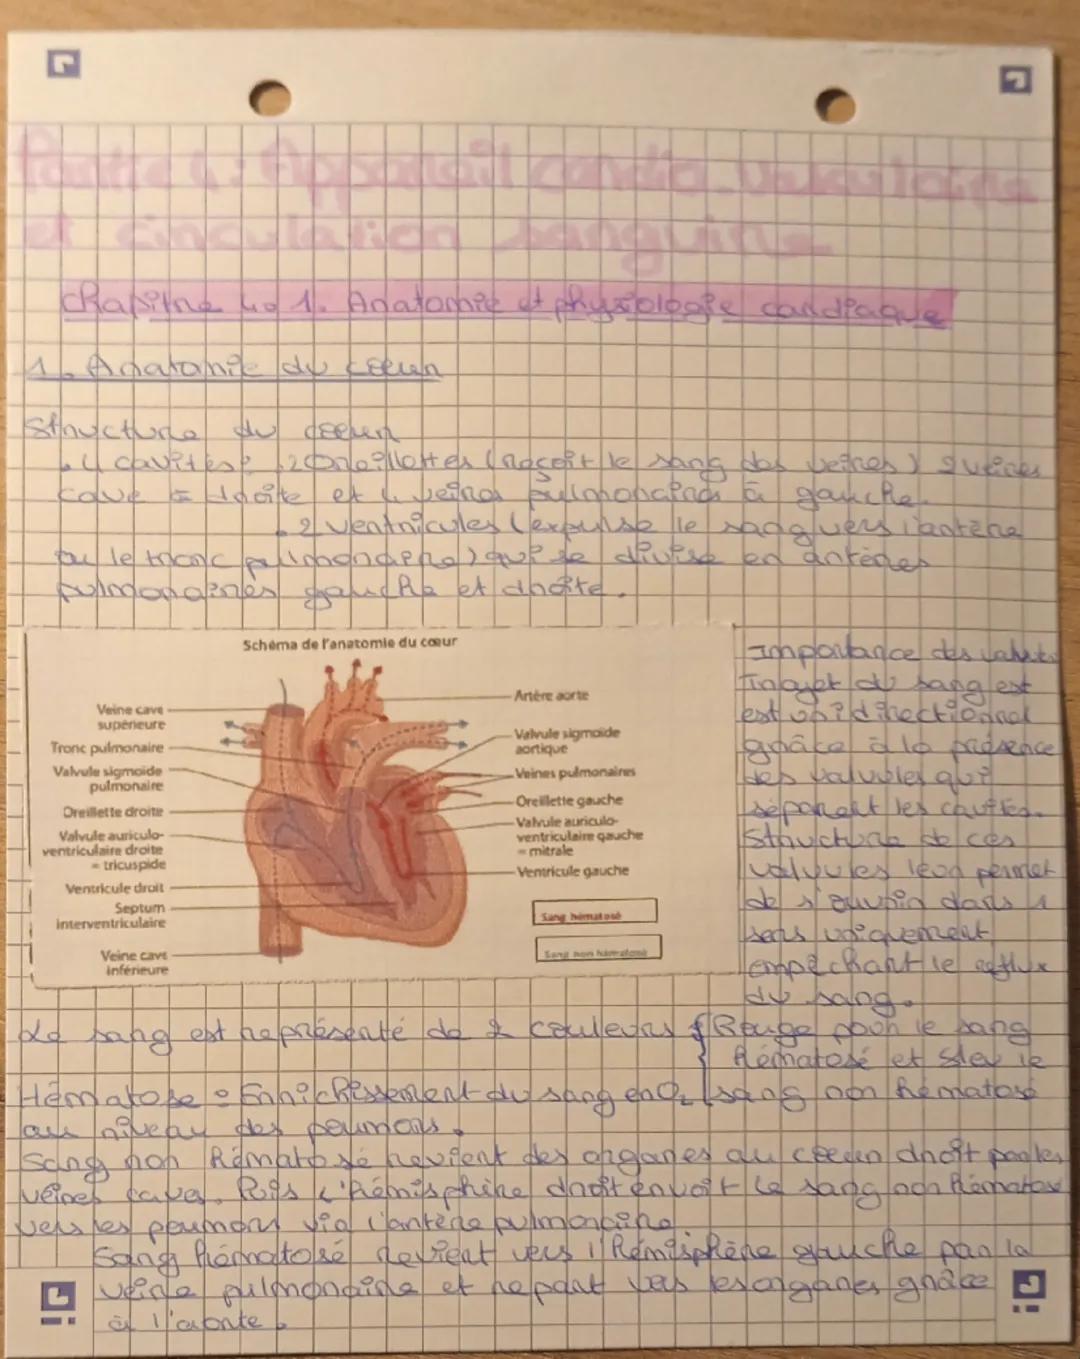 Partie 4 : Appareil cardio-vasculaire
et circulation sanguine
Chapitre 4.1. Anatomie et physiologie cardiaque
1. Anatomie du cœur
Structure du cœur
4 cavités : 2 Oreillettes (reçoit le sang des veines) 2 veines
cave à droite et 4 veines pulmonaires à gauche.
2 ventricules (expulse le sang vers l'artère
ou le tronc pulmonaire) qui se divise en artères
pulmonaires gauche et droite.
Schéma de l'anatomie du cœur
Veine cave
supérieure
Tronc pulmonaire
Valvule sigmoïde
pulmonaire
Oreillette droite
Valvule auriculo-
ventriculaire droite
= tricuspide
Ventricule droit
Septum
interventriculaire
Veine cave
inférieure
Artère aorte
Valvule sigmoïde
aortique
Veines pulmonaires
Oreillette gauche
Valvule auriculo-
ventriculaire gauche
= mitrale
Ventricule gauche
Sang hématosé
Sang non hématosé
Importance des
Trajet du sang est
est unidirectionnel
grâce à la présence
des valvules qui
séparent les cavités.
Structure de ces
valvules leur permet
de s'ouvrir dans 1
sens uniquement
empêchant le reflux
du sang.
Le sang est représenté de 2 couleurs { Rouge pour le sang
hématosé et bleu le
sang non hématosé
Hématose : Enrichissement du sang en O2
au niveau des poumons.
Sang non hématosé revient des organes au cœur droit par les
veines caves. Puis l'hémisphère droit envoit le sang non hématosé
vers les poumons via l'artère pulmonaire.
Sang hématosé revient vers l'hémisphère gauche par la
veine pulmonaire et repart vers les organes grâce
à l'aorte.